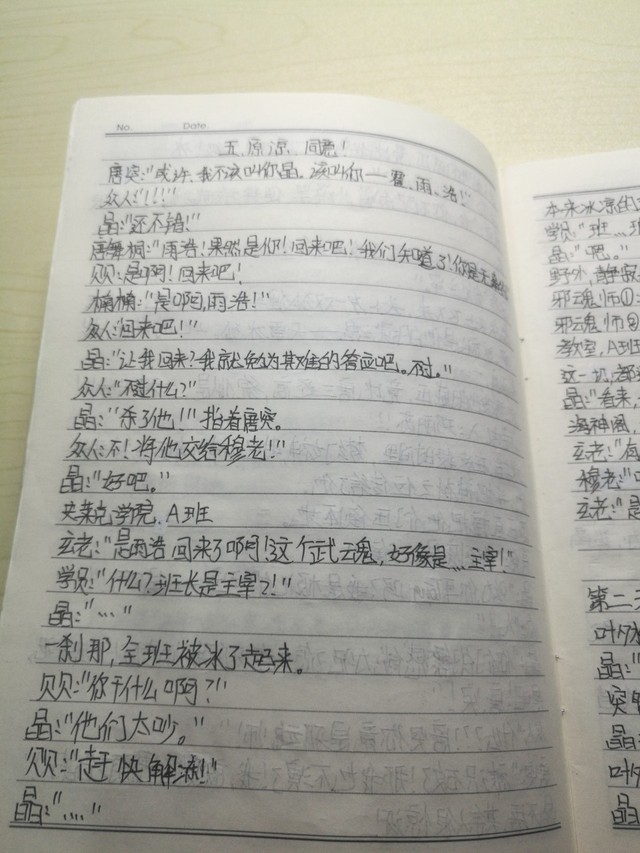 No. Date
五.原谅、同意！
唐突:"或许、我不该叫你晶。该叫你——霍.雨.浩!"
众人:"!!!"
晶:"还不错!"
唐舞桐:"雨浩!果然是你!回来吧!我们知道了!你是无辜
贝贝:是啊!回来吧!
楠楠:"是啊,雨浩!"
众人:"回来吧!"
晶:"让我回来?我就勉为其难的答应吧。不过。"
众人:"不过什么?"
晶:"杀了他!"指着唐突。
众人:不!将他交给穆老!"
晶:"好吧。"
史莱克学院.A班
玄老:"是雨浩回来了啊!这个武魂,好像是...主宰!"
学员:"什么?班长是主宰?!"
晶:"...."
一刹那,全班被冰了起来。
贝贝:"你干什么啊?!"
晶:"他们太吵。"
贝贝:"赶快解冻!"
晶:"...."
本来冰凉的
学员:"班...班
晶:"吧。"
野外,静寂
邪魂师①:
邪魂师②
教室,A班
这一切,都
晶:"看来,
海神阁,
玄老:"有
穆老:"
玄老:"是
第二
叶
晶:"
突
晶:
叶
晶: